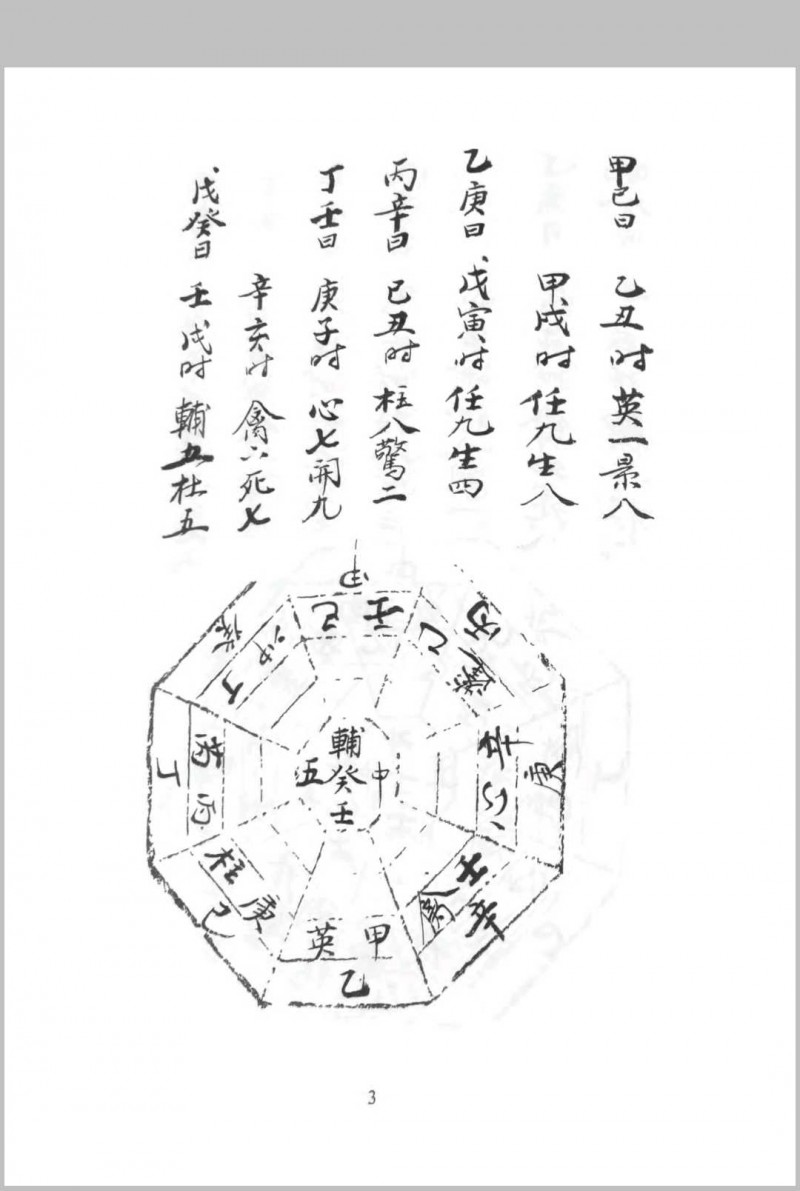 甲己日 乙丑时 英一景八
甲戌时 任九生八
乙庚日 戊寅时 任九生四
丙辛日 己丑时 柱八驚二
丁壬日 庚子时 心七開九
辛亥时 禽六死七
戊癸日 壬戌时 輔五杜五
甲
壬己
丙
乙
癸
冲
丁
丁
芮丙
輔
五癸中
壬
辛
心
庚
柱庚
己
英甲
乙
壬
辛
3